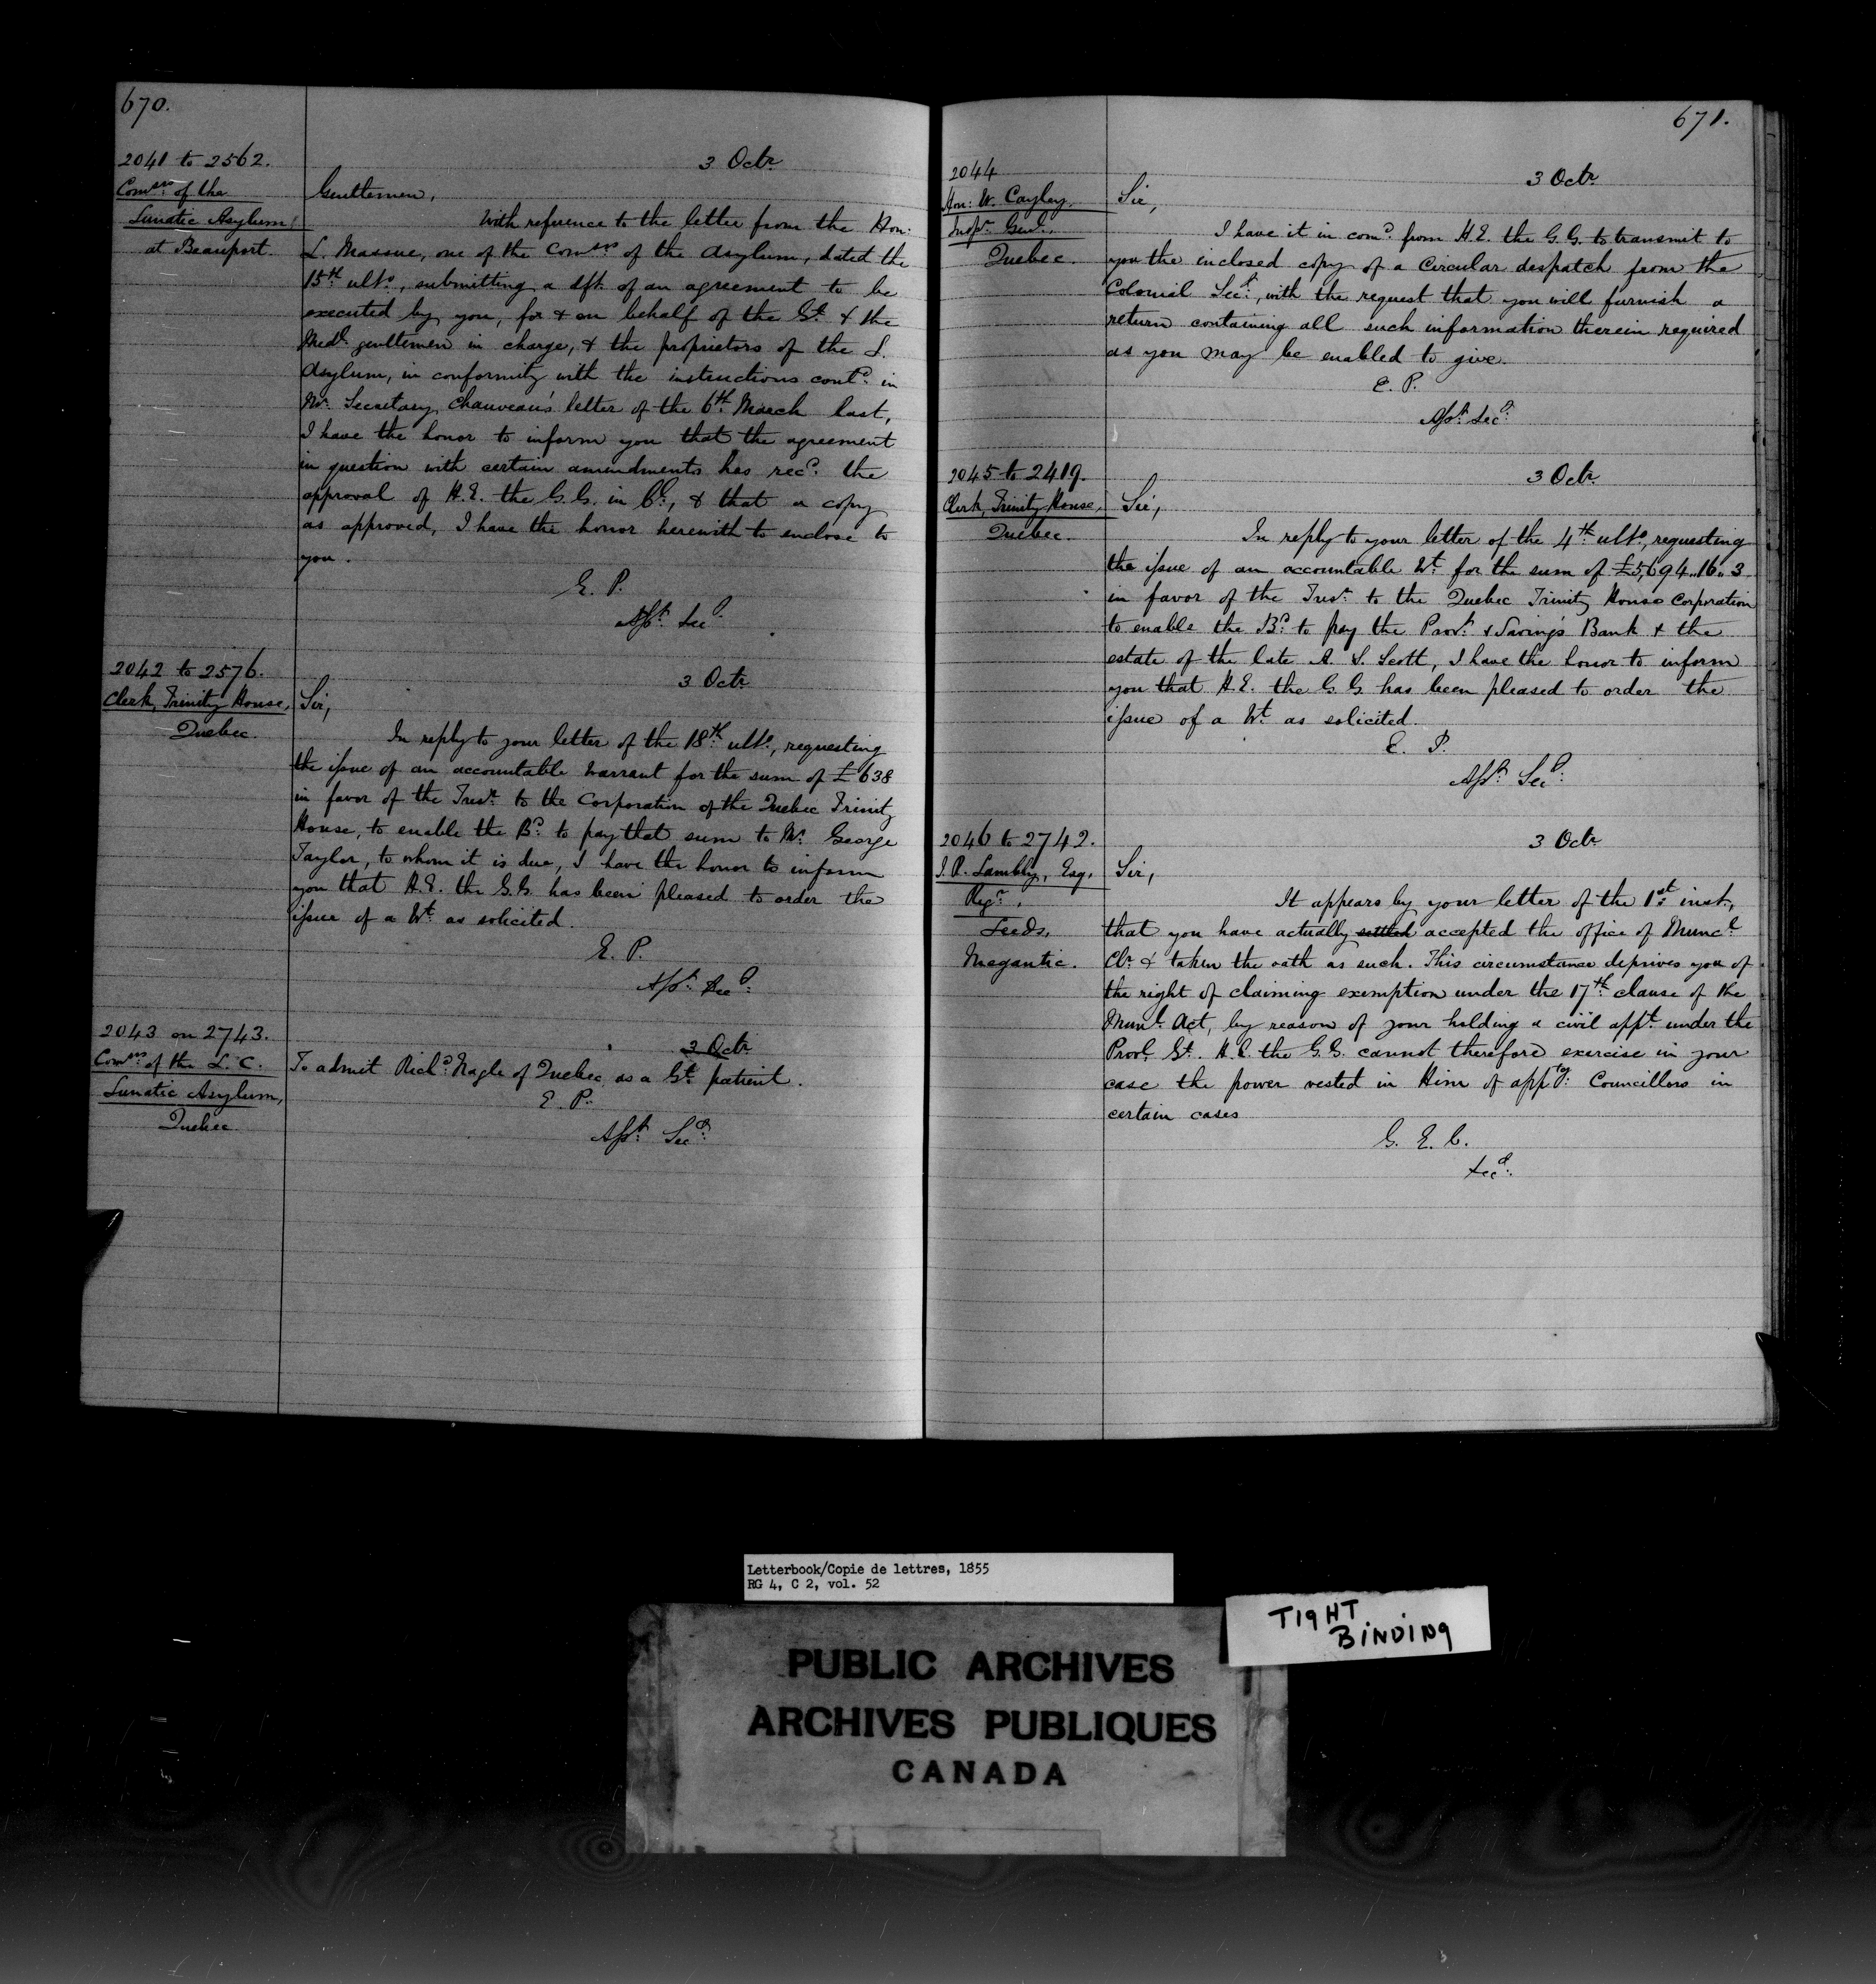 670.
2041 to 2562.
Comsrs of the
Lunatic Asylum
at Beauport.
3 Octr
Gentlemen,
With reference to the letter from the Hon:
L. Massue, one of the Comsrs of the Asylum, dated the
15th ulto, submitting a dft of an agreement to be
executed by you, for & on behalf of the Gt & the
Medl gentlemen in charge, & the proprietors of the L.
Asylum, in conformity with the instructions contd in
Mr Secretary Chauveau's letter of the 6th March last,
I have the honor to inform you that the agreement
in question with certain amendments has recd the
approval of H.E. the G.G. in Cl, & that a copy
as approved, I have the honor herewith to enclose to
you.
E. P.
Asst Secy
2042 to 2576.
Clerk, Trinity House,
Quebec.
3 Octr
Sir,
In reply to your letter of the 18th ulto, requesting
the issue of an accountable Warrant for the sum of £638
in favor of the Tresr to the Corporation of the Quebec Trinity
House, to enable the Bd to pay that sum to Mr George
Taylor, to whom it is due, I have the honor to inform
you that H.E. the G.G. has been pleased to order the
issue of a Wt as solicited.
E. P.
Asst Secy
2043 on 2743.
Comsrs of the L. C.
Lunatic Asylum,
Quebec
3 Octr
To admit Richd Nagle of Quebec as a Gt patient.
E. P.
Asst Secy
671.
2044
Hon: W. Cayley.
Inspr Genl.
Quebec.
3 Octr
Sir,
I have it in comd from H.E. the G.G. to transmit to
you the inclosed copy of a Circular despatch from the
Colonial Secy, with the request that you will furnish a
return containing all such information therein required
as you may be enabled to give.
E. P.
Asst Secy
2045 to 2419.
Clerk, Trinity House,
Quebec.
3 Octr
Sir,
In reply to your letter of the 4th ulto, requesting
the issue of an accountable Wt for the sum of £5,694..16..3
in favor of the Tresr to the Quebec Trinity House Corporation
to enable the Bd to pay the Provt & Savings Bank & the
estate of the late A. S. Scott, I have the honor to inform
you that H.E. the G.G. has been pleased to order the
issue of a Wt as solicited.
E. P.
Asst Secy
2046 to 2742.
J. R. Lambly, Esq,
Regr,
Leeds,
Megantic.
3 Octr
Sir,
It appears by your letter of the 1st inst.,
that you have actually settled accepted the office of Muncl
Clr & taken the oath as such. This circumstance deprives you of
the right of claiming exemption under the 17th clause of the
Munl Act, by reason of your holding a civil appt under the
Provl Gt. H.E. the G.G. cannot therefore exercise in your
case the power vested in Him of apptg Councillors in
certain cases
G. E. C.
Secy
Letterbook/Copie de lettres, 1855
RG 4, C 2, vol. 52
TIGHT
BINDING
PUBLIC ARCHIVES
ARCHIVES PUBLIQUES
CANADA